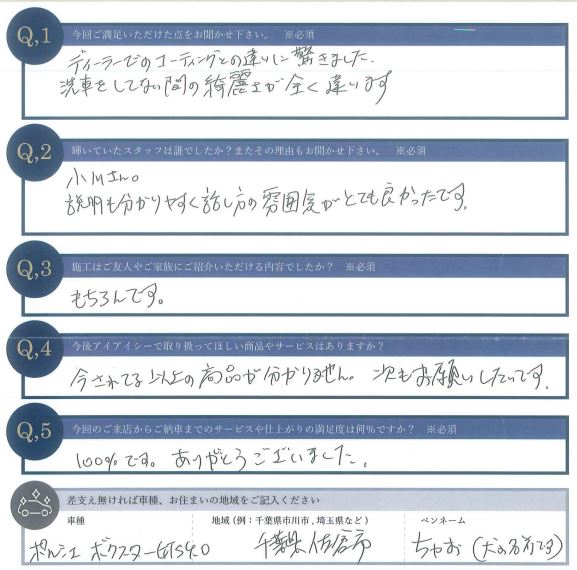 Q,1
今回ご満足いただけた点をお聞かせ下さい。 ※必須
ディーラーでのコーティングとの違いに驚きました。
洗車をしてない間の綺麗さが全く違います
Q,2
輝いていたスタッフは誰でしたか？またその理由もお聞かせ下さい。 ※必須
小川さん。
説明も分かりやすく話し方の雰囲気がとても良かったです。
Q,3
施工はご友人やご家族にご紹介いただける内容でしたか？ ※必須
もちろんです。
Q,4
今後アイアイシーで取り扱ってほしい商品やサービスはありますか？
今されてる以上の商品が分かりません。 次もお願いしたいです。
Q,5
今回のご来店からご納車までのサービスや仕上がりの満足度は何%ですか？ ※必須
100%です。ありがとうございました。
差支え無ければ車種、お住まいの地域をご記入ください
車種 地域（例：千葉県市川市,埼玉県など） ペンネーム
ポルシェ ボクスターGTS4.0 千葉県佐倉市 ちゃお（犬の名前です）